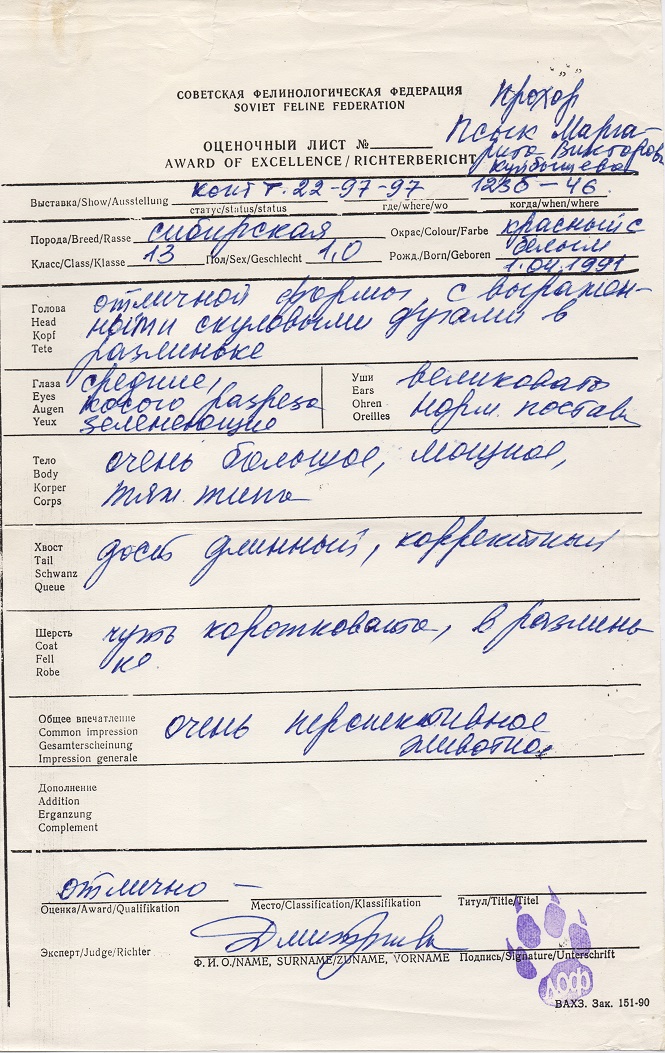 СОВЕТСКАЯ ФЕЛИНОЛОГИЧЕСКАЯ ФЕДЕРАЦИЯ
SOVIET FELINE FEDERATION
Прохор
ОЦЕНОЧНЫЙ ЛИСТ №
AWARD OF EXCELLENCE/RICHTERBERICHT
Псык Марга-
рита Викторовна
Куйбышева
1236-46
Выставка/Show/Ausstellung конт т. 22-97-97
статус/status/status где/where/wo когда/when/where
Порода/Breed/Rasse сибирская Окрас/Colour/Farbe красный с
белым
Класс/Class/Klasse 13 Пол/Sex/Geschlecht 1,0 Рожд./Born/Geboren 1.04.1991
Голова отличной формы, с выражен-
Head ными скуловыми дугами в
Kopf разминьке
Tete
Глаза средние,
Eyes косого разреза
Augen зеленеющие
Yeux
Уши великоваты
Ears норм. постав
Ohren
Oreilles
Тело очень большое, мощное,
Body тяж. типа
Korper
Corps
Хвост дост длинный, корректный
Tail
Schwanz
Queue
Шерсть чуть коротковата, в размень
Coat ке
Fell
Robe
Общее впечатление очень перспективное
Common impression животное
Gesamterscheinung
Impression generale
Дополнение
Addition
Erganzung
Complement
отлично –
Оценка/Award/Qualifikation Место/Classification/Klassifikation Титул/Title/Titel
Эксперт/Judge/Richter
Ф. И. О./NAME, SURNAME/ZUNAME, VORNAME Подпись/Signature/Unterschrift
ВАХЗ. Зак. 151-90